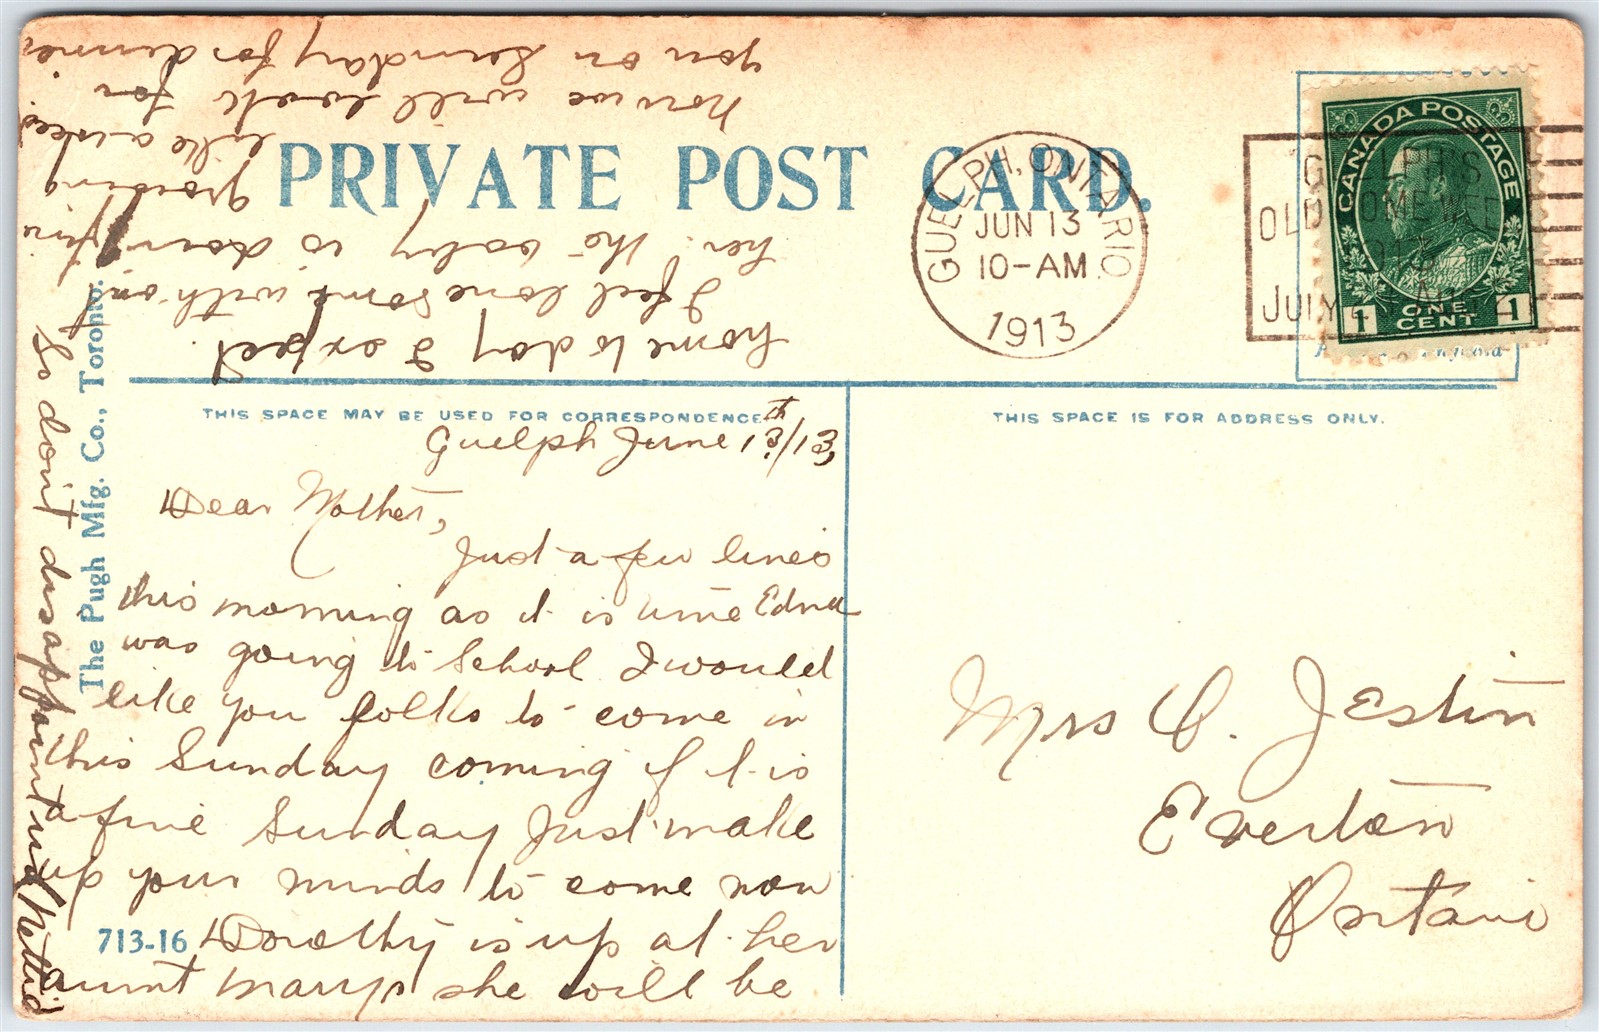 PRIVATE POST CARD.
GUELPH, ONTARIO
JUN 13
10-AM
1913
GUELPH'S
OLD HOME WEEK
1913
JULY
CANADA POSTAGE
1 ONE CENT 1
THIS SPACE MAY BE USED FOR CORRESPONDENCE
THIS SPACE IS FOR ADDRESS ONLY.
The Pugh Mfg. Co., Toronto.
713-16
Guelph June 13th/13,
Dear Mother,
Just a few lines
this morning as it is time Edna
was going to School I would
like you folks to come in
this Sunday coming if it is
a fine Sunday Just make
up your minds to come now
Dorothy is up at her
aunt Marys she will be
home to day I expect.
I feel lonesome without
her. the baby is doing fine
growing like a weed
now we will look for
you on Sunday for dinner
So don't disappoint us Nettie
Mrs C. Jestin
Everton
Ontario